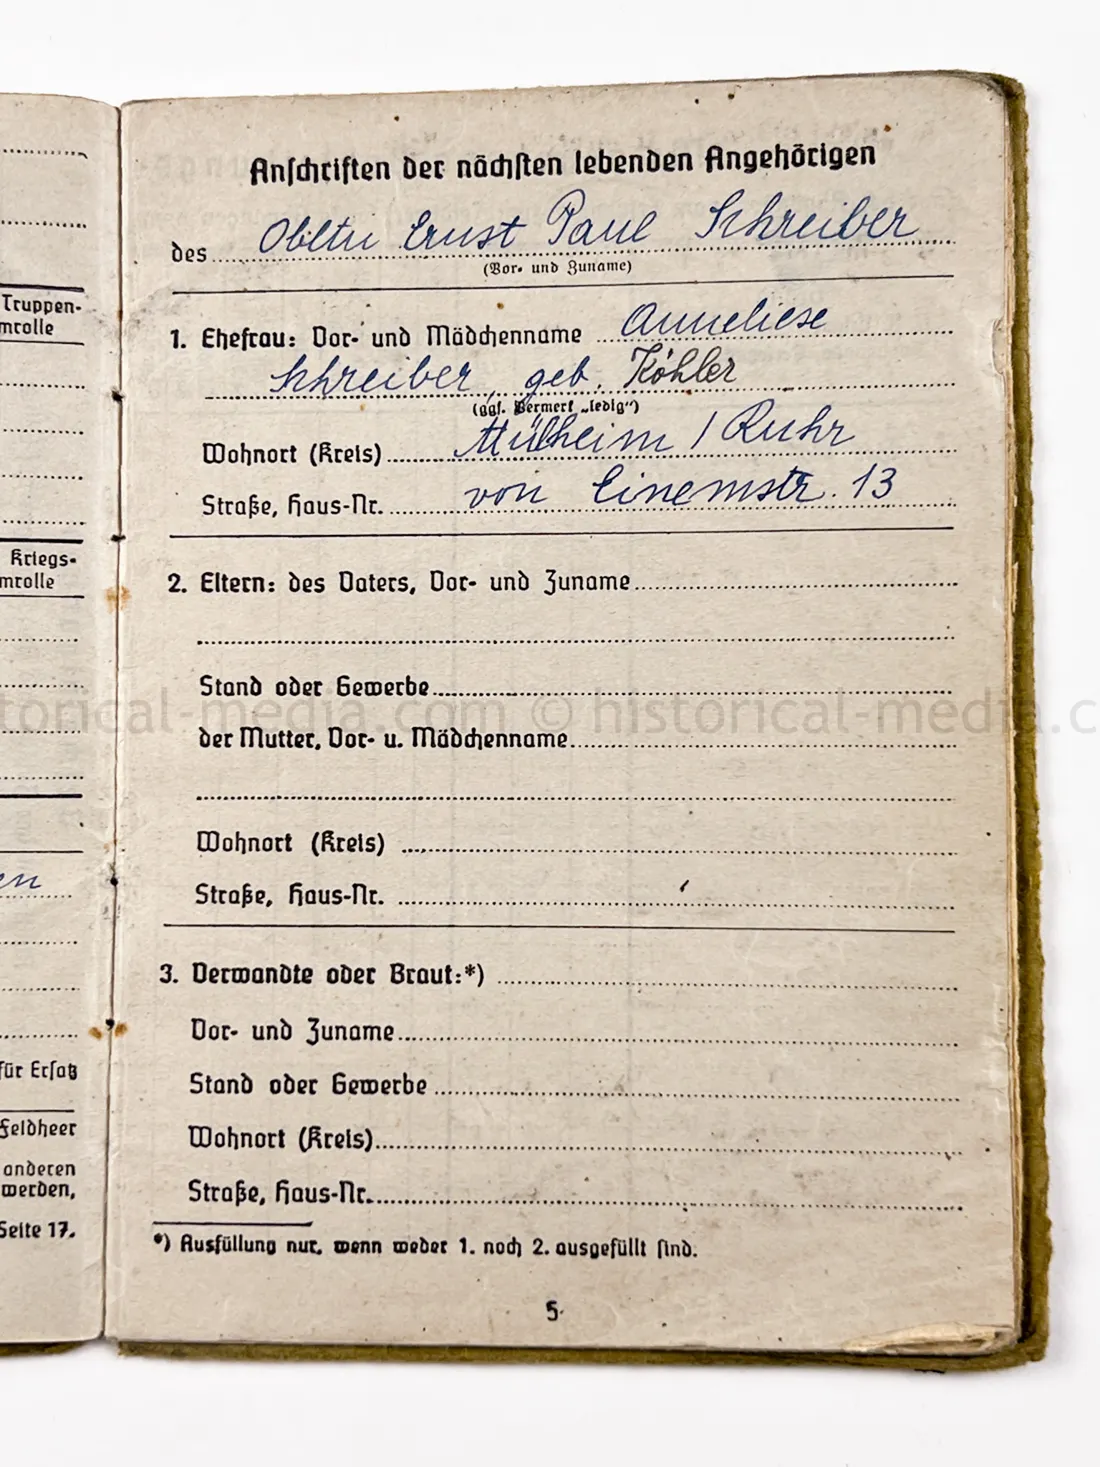 Truppen-
mrolle
Kriegs-
mrolle
en
für Ersatz
Feldheer
anderen
werden,
Seite 17.
Anschriften der nächsten lebenden Angehörigen
des Obltn Ernst Paul Schreiber
(Vor- und Zuname)
1. Ehefrau: Vor- und Mädchenname Anneliese
Schreiber, geb. Köhler
(ggf. Vermerk „ledig“)
Wohnort (Kreis) Mülheim / Ruhr
Straße, Haus-Nr. von Einemstr. 13
2. Eltern: des Vaters, Vor- und Zuname
Stand oder Gewerbe
der Mutter, Vor- u. Mädchenname
Wohnort (Kreis)
Straße, Haus-Nr.
3. Verwandte oder Braut:*)
Vor- und Zuname
Stand oder Gewerbe
Wohnort (Kreis)
Straße, Haus-Nr.
*) Ausfüllung nur, wenn weder 1. noch 2. ausgefüllt sind.
5
torical-media.com © historical-media.c